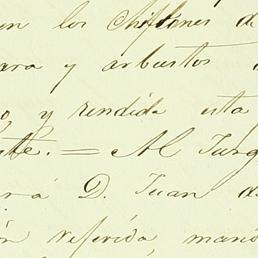 en los Chiflones de
ara y arbustos
o, y rendida esta
te. = Al Juzg
rá D. Juan de
ón referida, mand